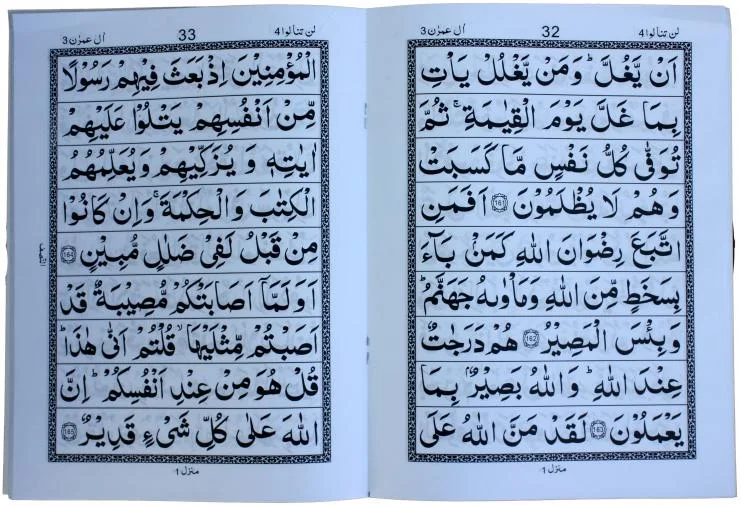 لن تنالوا 4 32 اٰل عمرٰن 3
اَنْ يَّغُلَّ ؕ وَمَنْ يَّغْلُلْ يَاْتِ
بِمَا غَلَّ يَوْمَ الْقِيٰمَةِ ۚ ثُمَّ
تُوَفّٰى كُلُّ نَفْسٍ مَّا كَسَبَتْ
وَهُمْ لَا يُظْلَمُوْنَ 161 اَفَمَنِ
اتَّبَعَ رِضْوَانَ اللّٰهِ كَمَنْۢ بَآءَ
بِسَخَطٍ مِّنَ اللّٰهِ وَمَاْوٰىهُ جَهَنَّمُ ؕ
وَبِئْسَ الْمَصِيْرُ 162 هُمْ دَرَجٰتٌ
عِنْدَ اللّٰهِ ؕ وَاللّٰهُ بَصِيْرٌۢ بِمَا
يَعْمَلُوْنَ 163 لَقَدْ مَنَّ اللّٰهُ عَلَى
منزل 1
لن تنالوا 4 33 اٰل عمرٰن 3
الْمُؤْمِنِيْنَ اِذْ بَعَثَ فِيْهِمْ رَسُوْلًا
مِّنْ اَنْفُسِهِمْ يَتْلُوْا عَلَيْهِمْ
اٰيٰتِهٖ وَيُزَكِّيْهِمْ وَيُعَلِّمُهُمُ
الْكِتٰبَ وَالْحِكْمَةَ ۚ وَاِنْ كَانُوْا
مِنْ قَبْلُ لَفِيْ ضَلٰلٍ مُّبِيْنٍ 164
النصف
اَوَلَمَّاۤ اَصَابَتْكُمْ مُّصِيْبَةٌ قَدْ
اَصَبْتُمْ مِّثْلَيْهَا ۙ قُلْتُمْ اَنّٰى هٰذَا ؕ
قُلْ هُوَ مِنْ عِنْدِ اَنْفُسِكُمْ ؕ اِنَّ
اللّٰهَ عَلٰى كُلِّ شَيْءٍ قَدِيْرٌ 165
منزل 1